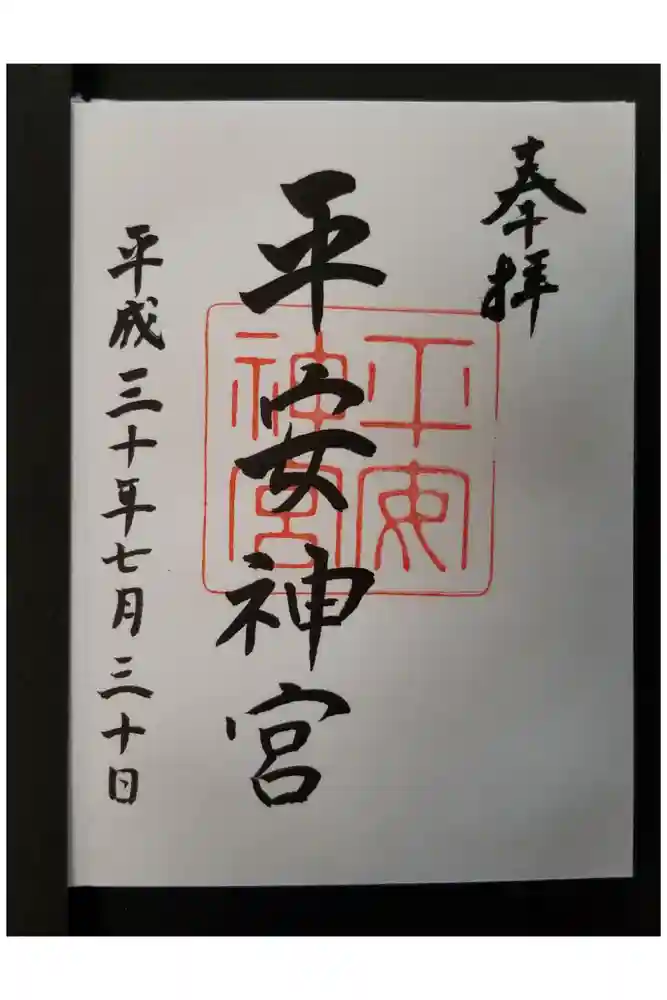 奉拝
平安神宮
平安神宮
平成三十年七月三十日